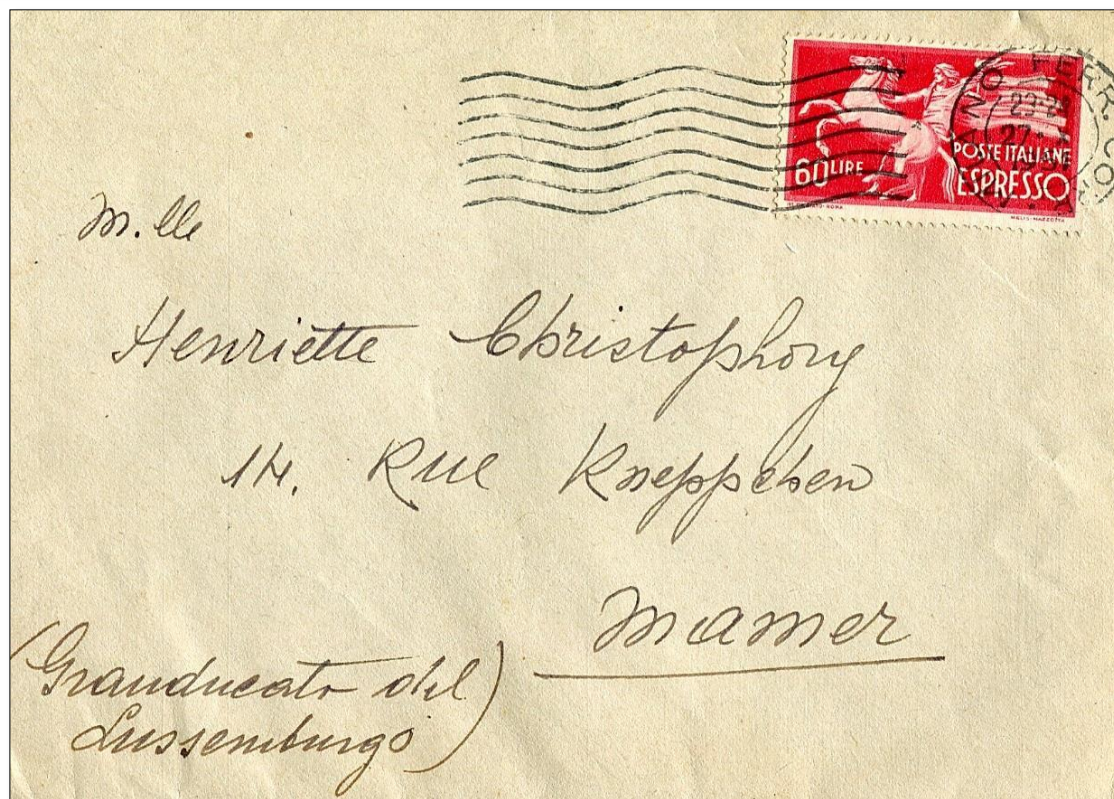 60 LIRE
POSTE ITALIANE
ESPRESSO
M.lle
Henriette Christophory
14. Rue Kneppchen
Mamer
(Granducato del
Lussemburgo)